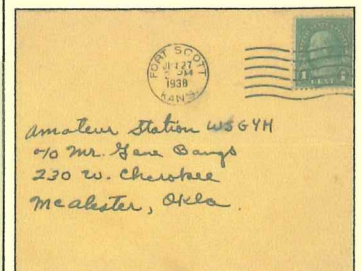 FORT SCOTT
27
1938
KANS.
1 CENT
Amateur Station W5GYH
c/o Mr. Gene Bangs
230 W. Cherokee
McAlester, Okla.